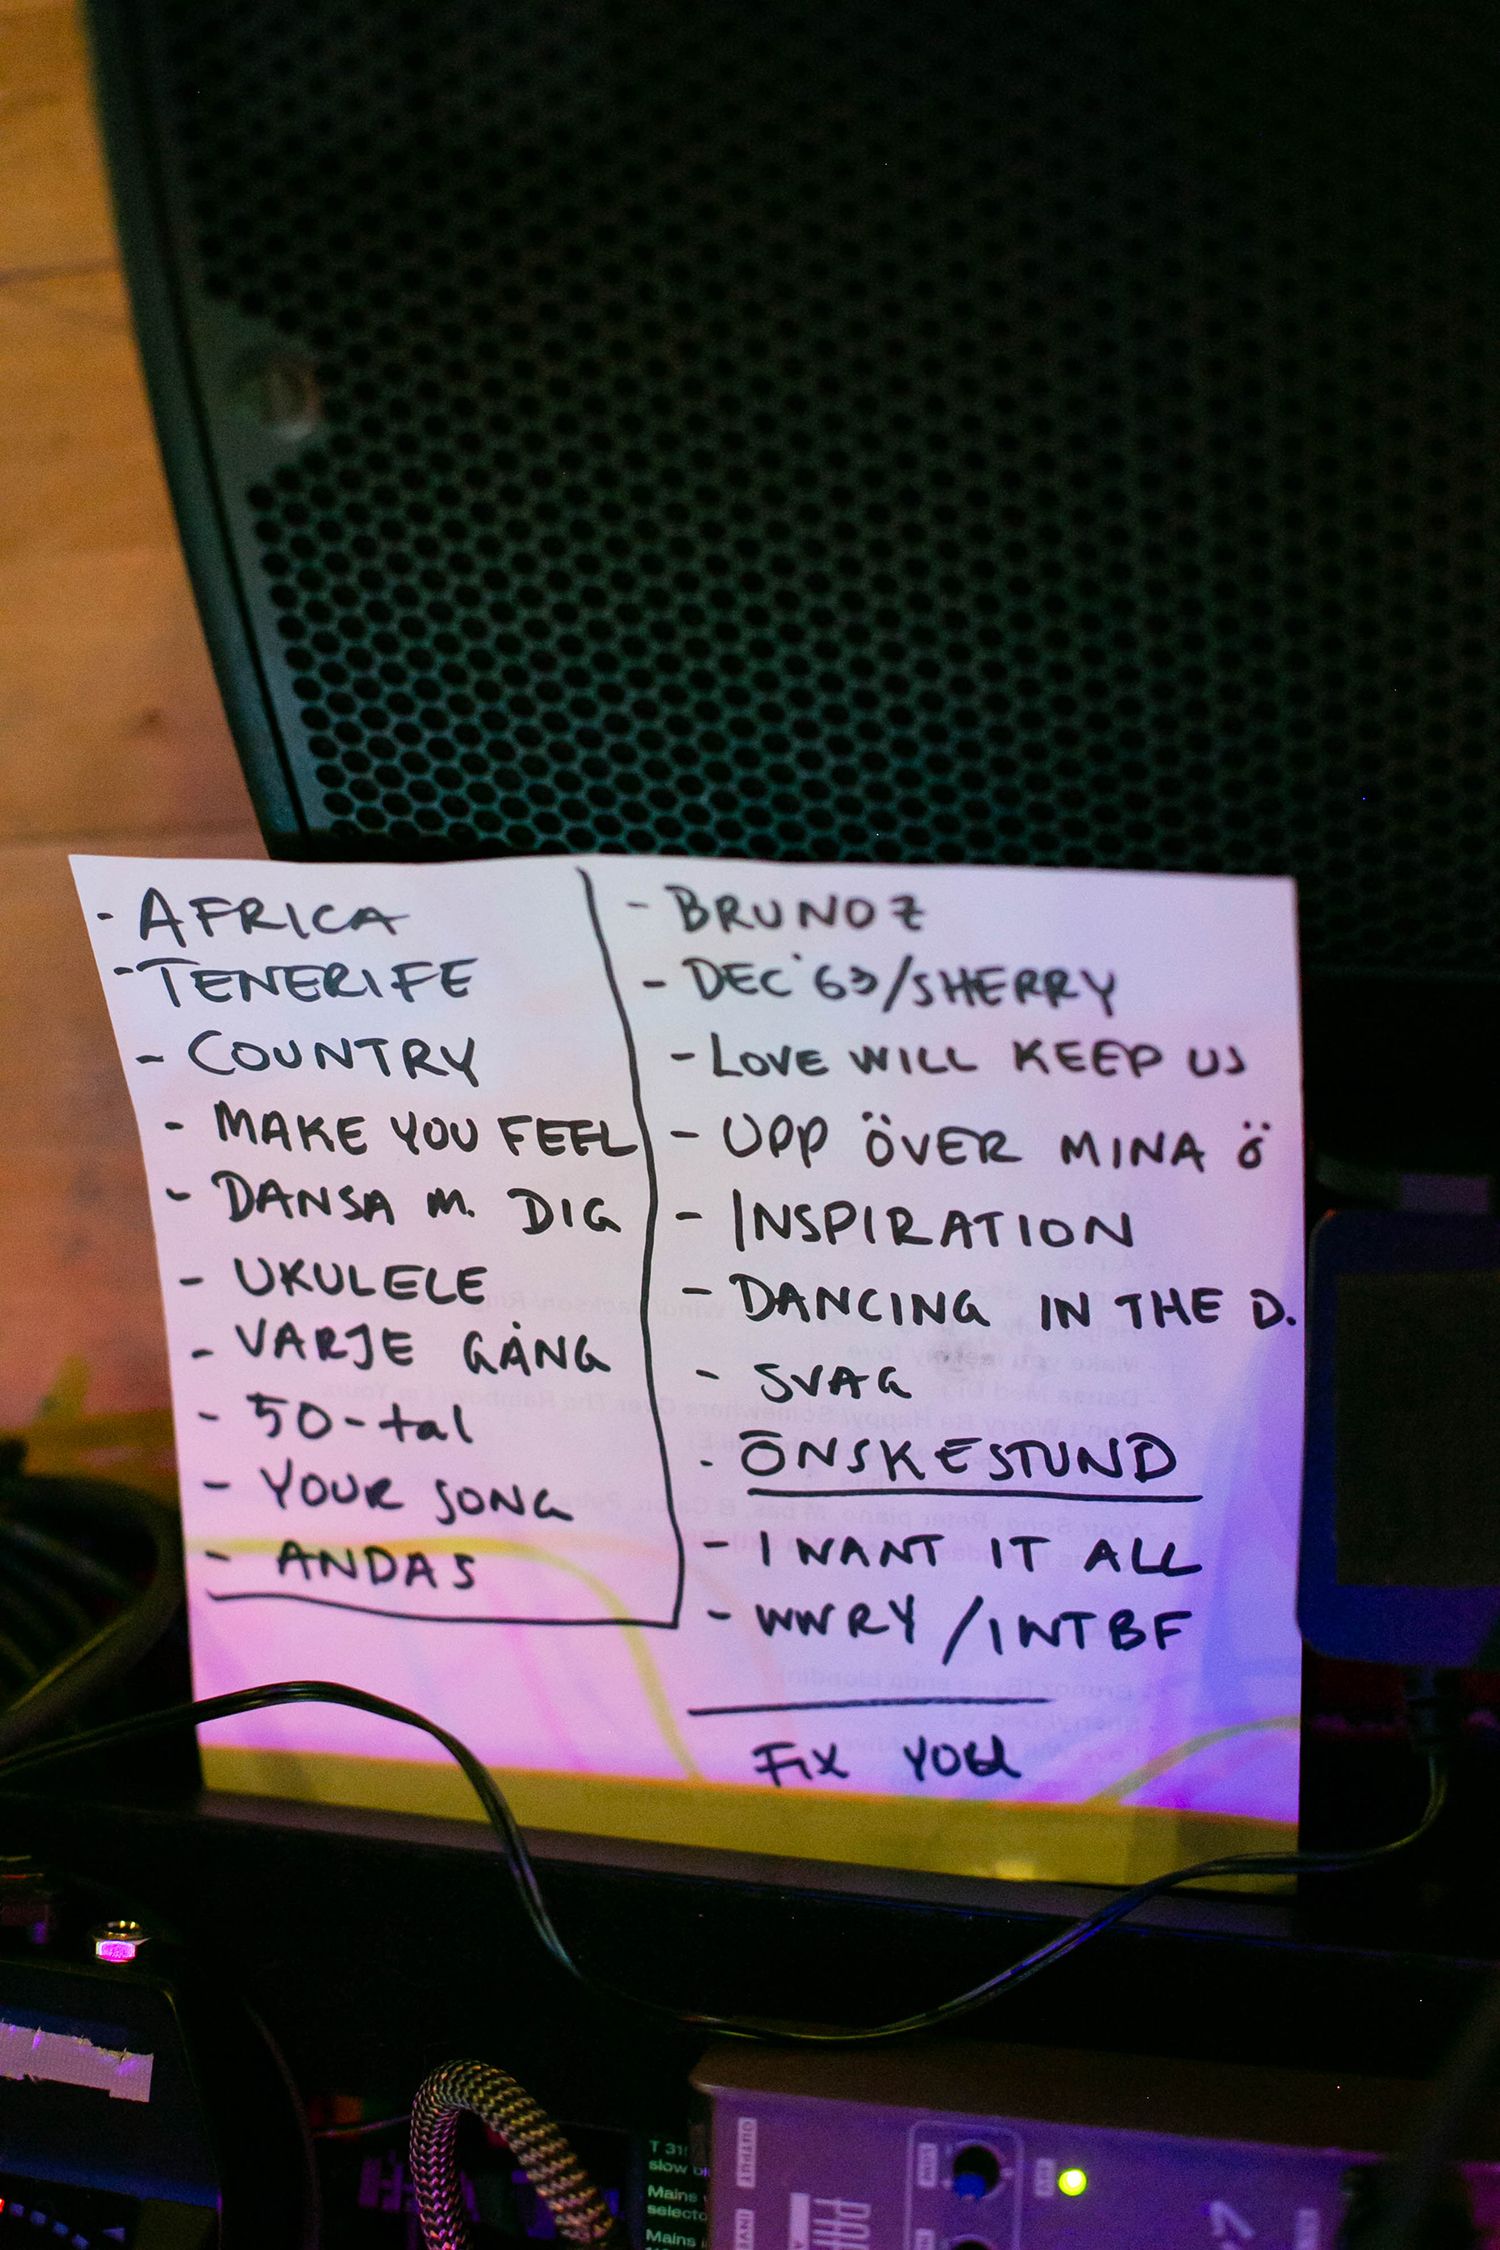 - AFRICA
- TENERIFE
- COUNTRY
- MAKE YOU FEEL
- DANSA M. DIG
- UKULELE
- VARJE GÅNG
- 50-tal
- YOUR SONG
- ANDAS
- BRUNOZ
- DEC '63/SHERRY
- LOVE WILL KEEP US
- UPP ÖVER MINA Ö
- INSPIRATION
- DANCING IN THE D.
- SVAG
- ÖNSKESTUND
- I WANT IT ALL
- WWRY/IWTBF
FIX YOU
T
slow
Mains
Mains
OUTPUT